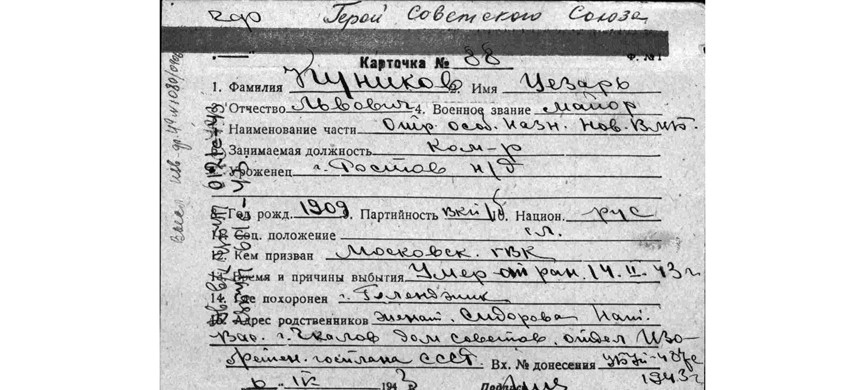 Герой Советского Союза
Карточка № 88 Ф. №1
1. Фамилия Куников 2. Имя Цезарь
Отчество Львович 4. Военное звание майор
Наименование части Отр. особ. назн. Нов. ВМБ.
Занимаемая должность Ком-р
Уроженец г. Ростов н/Д
8. Год рожд. 1909. Партийность ВКП/б. Национ. рус
11. Соц. положение сл.
12. Кем призван Московск. ГВК
13. Время и причины выбытия Умер от ран. 14. II. 43г
14. Где похоронен г. Геленджик
15. Адрес родственников женат. Сидорова Нат.
Вас. г. Чкалов дом советов, отдел Изо-
бретен. госплана СССР. Вх. № донесения
6. IV 1943г. 1943г